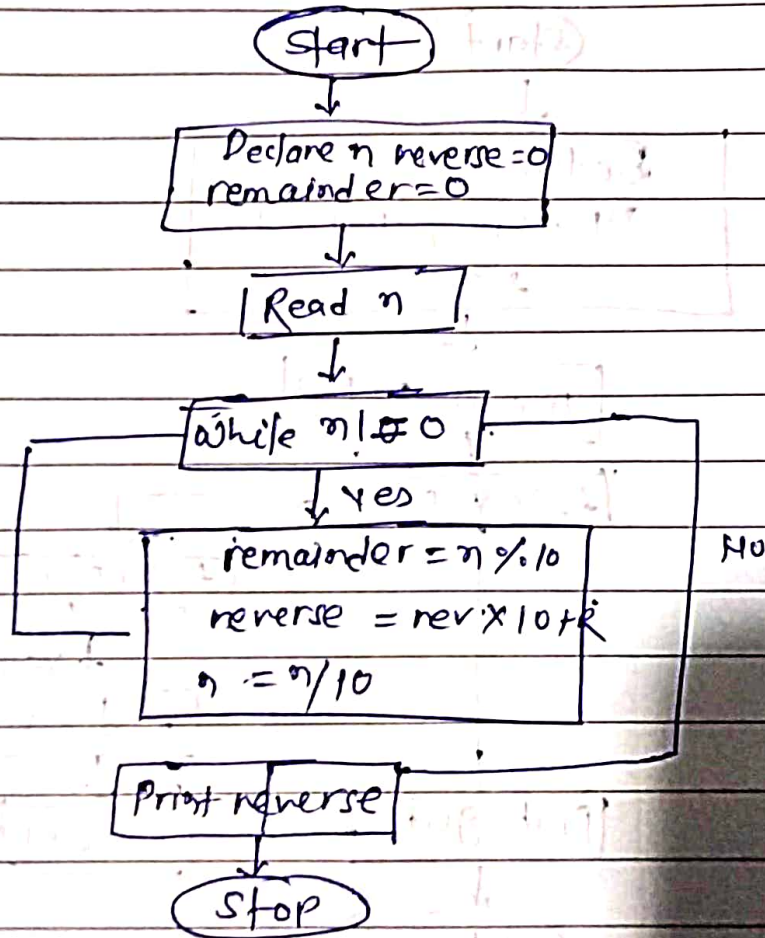 Start
Declare n reverse=0
remainder=0
Read n
While n!=0
Yes
remainder = n%10
No
reverse = rev.x10+R
n = n/10
Print reverse
Stop